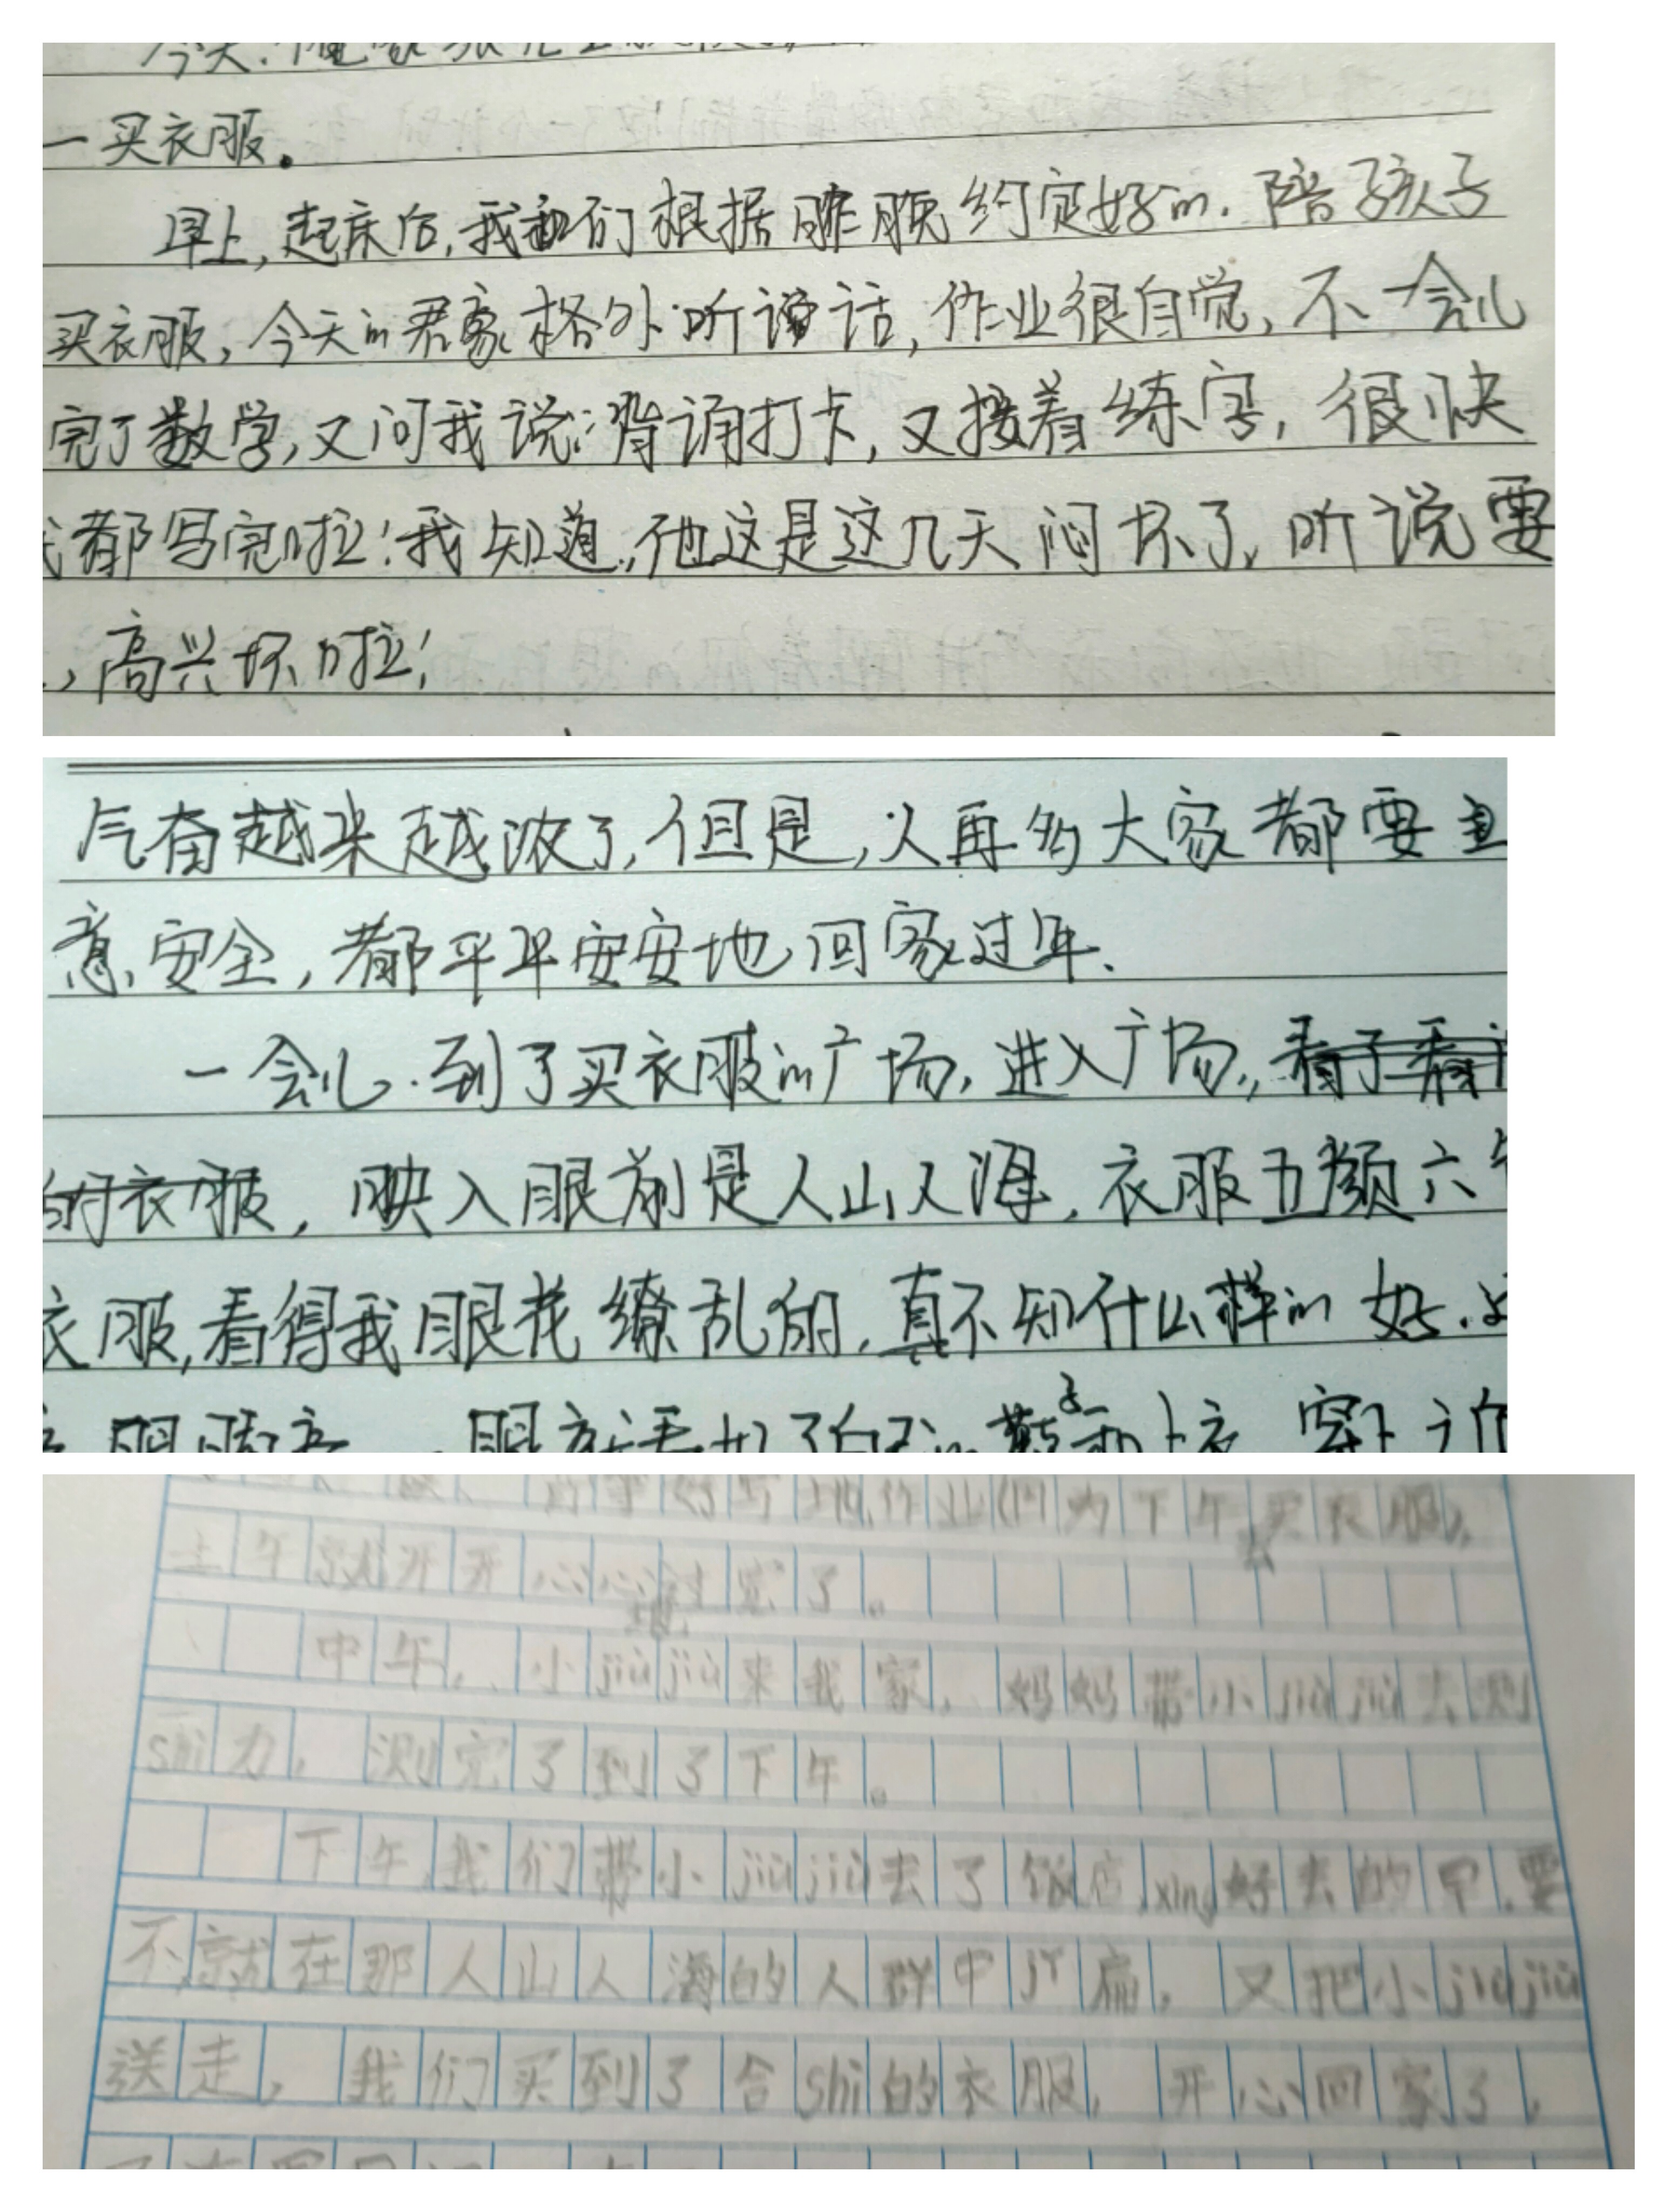 一买衣服。
早上,起床后,我们根据昨晚约定好的.陪孩子
买衣服,今天的君豪格外听话,作业很自觉,不一会儿
完了数学,又问我说:背诵打卡,又接着练字,很快
都写完啦!我知道,他这是这几天闷坏了,听说要
,高兴坏啦!
气奋越来越浓了,但是,人再多大家都要
意安全,都平平安安地回家过年.
一会儿.到了买衣服的广场,进入广场,看了看
的衣服,映入眼前是人山人海.衣服五颜六
衣服,看得我眼花缭乱的,真不知什么样的好.
作业们为下午买衣服,
上午就开开心心地过完了。
中午,小jiùjiù来我家,妈妈带小jiùjiù去测
shì力,测完了到了下午。
下午,我们带小jiùjiù去了饭店,xìng好去的早,要
不,就在那人山人海的人群中jǐ扁,又把小jiùjiù
送走,我们买到了合shì的衣服,开心回家了,